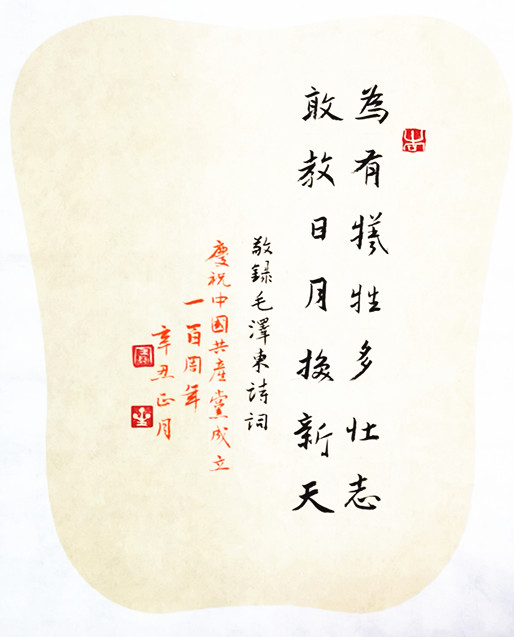 為有犧牲多壮志
敢教日月換新天
敬録毛澤東詩詞
慶祝中國共産黨成立
一百周年
辛丑正月